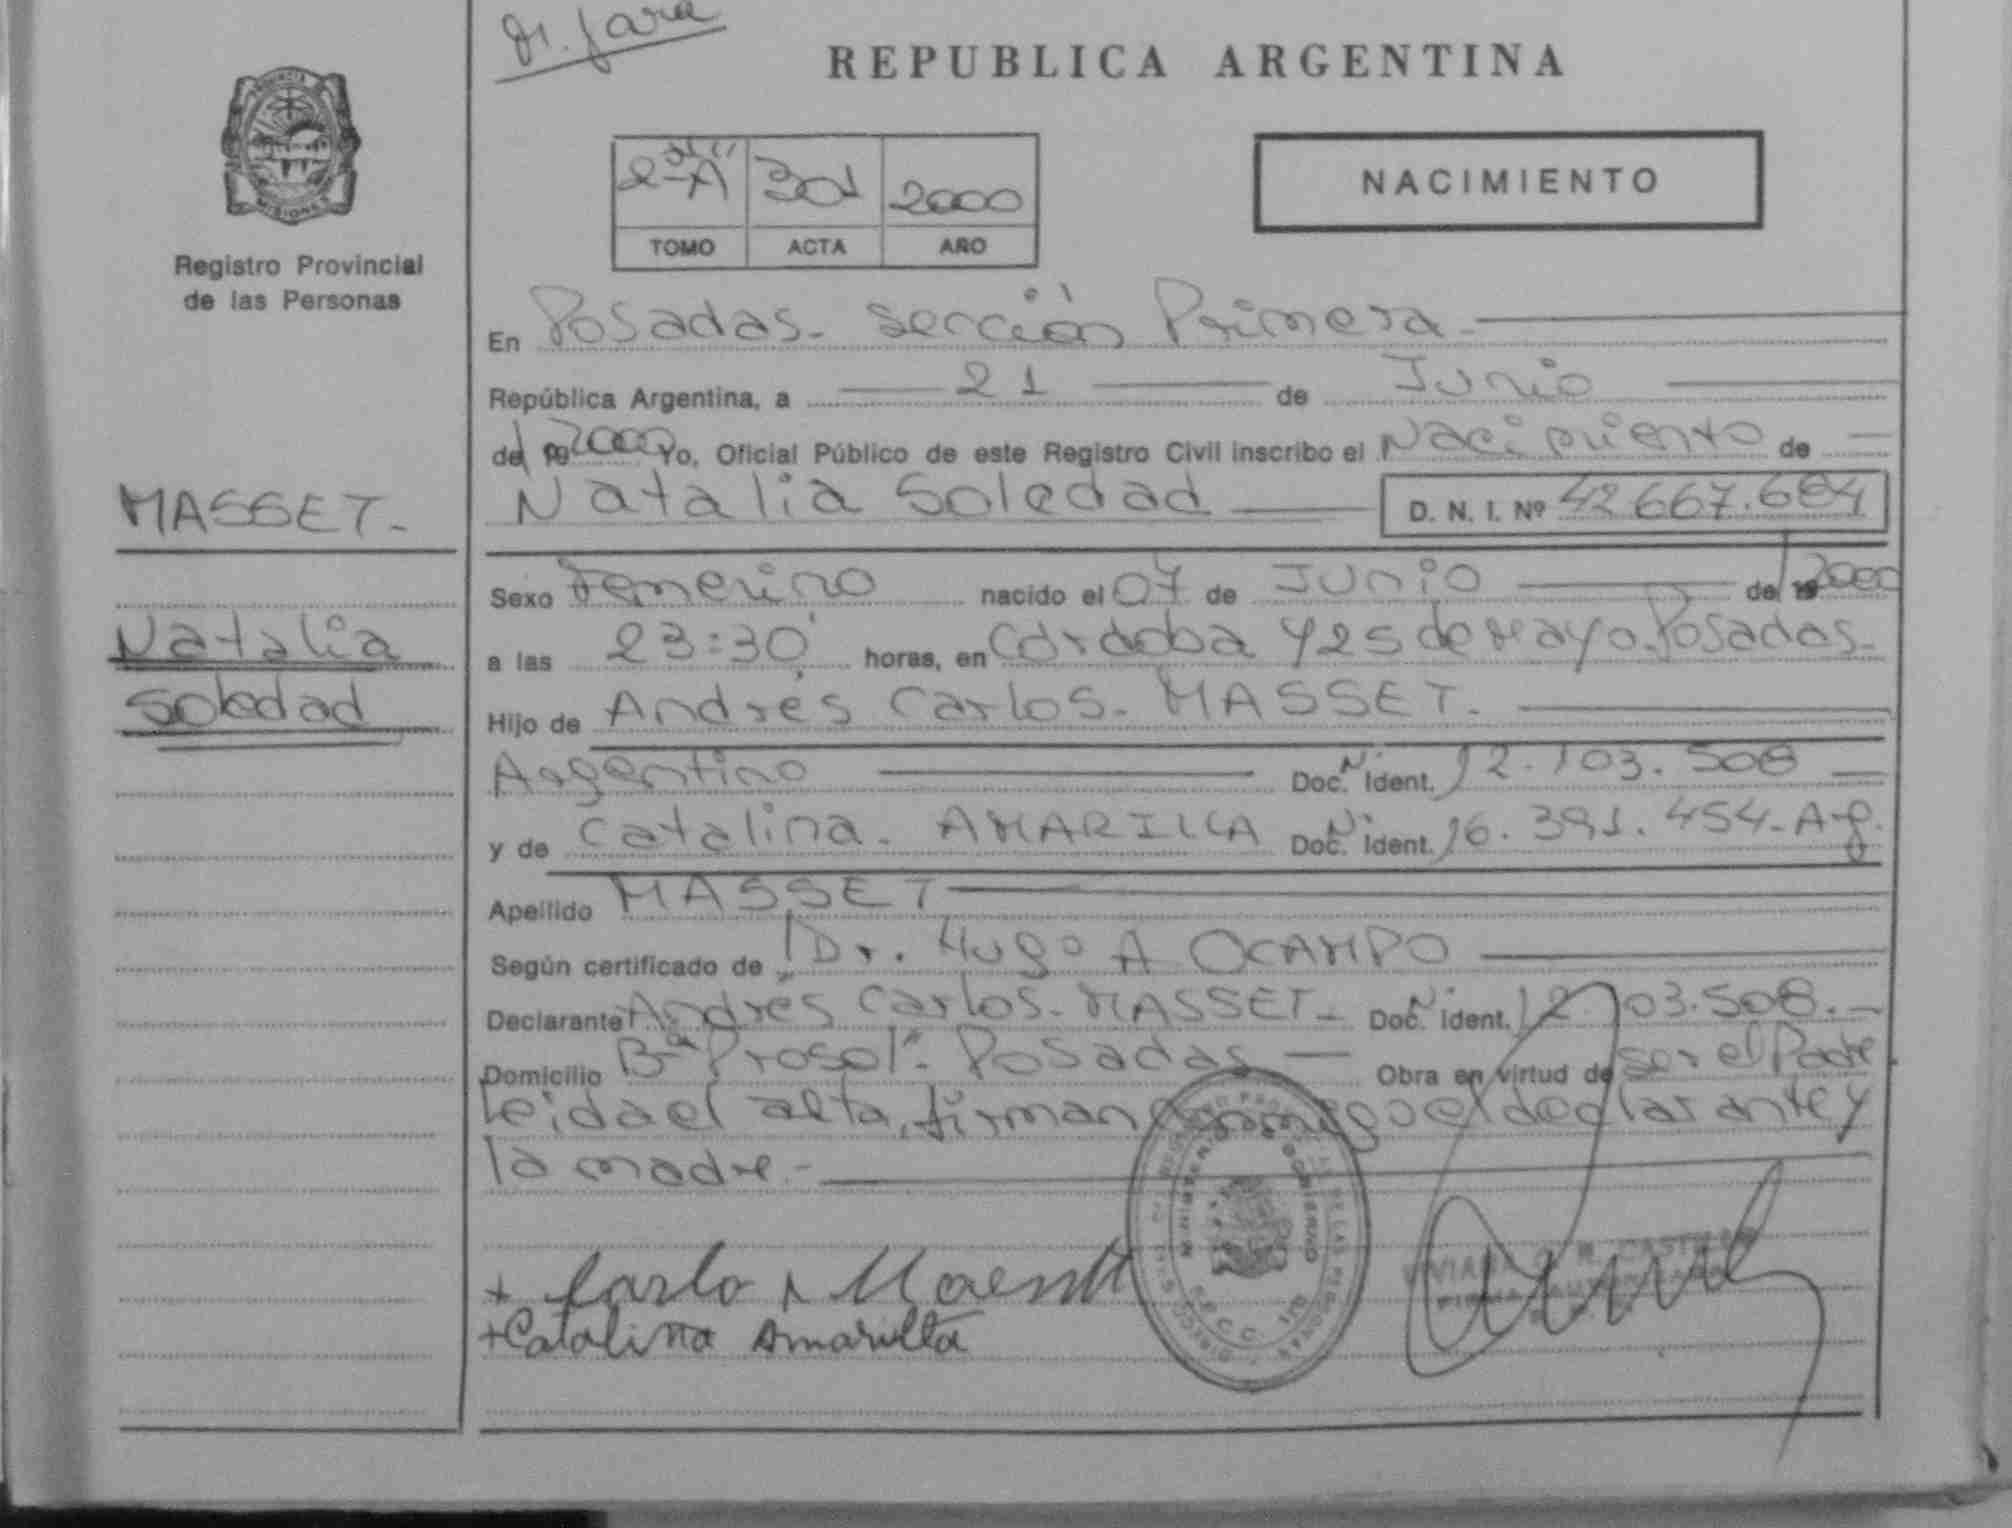 REPUBLICA ARGENTINA
PROVINCIA
MISIONES
Registro Provincial
de las Personas
2º "A" 301 2000
TOMO ACTA AÑO
NACIMIENTO
En Posadas - sección Primera -
República Argentina, a 21 de Junio
del 19 2000 Yo, Oficial Público de este Registro Civil inscribo el Nacimiento de
Natalia Soledad D. N. I. Nº 42 667.684
MASSET -
Natalia
Soledad
Sexo Femenino nacido el 07 de Junio del 19 2000
a las 23:30 horas, en Córdoba y 25 de Mayo - Posadas -
Hijo de Andrés Carlos - MASSET -
Argentino Doc. Nº Ident. 12.103.508
y de Catalina - AMARILLA Doc. Nº Ident. 16.391.454 - Arg.
Apellido MASSET
Según certificado de Dr. Hugo A OCAMPO
Declarante Andrés Carlos - MASSET - Doc. Nº Ident. 12.103.508. -
Domicilio Bº "Prosol" - Posadas - Obra en virtud de ser el Padre
Leida el acta, firman conmigo el declarante y
la madre. -
+ Carlo
+ Catalina Amarilla
CASTILLO
FIRMA AUTORIZADA
MINISTERIO DE GOBIERNO